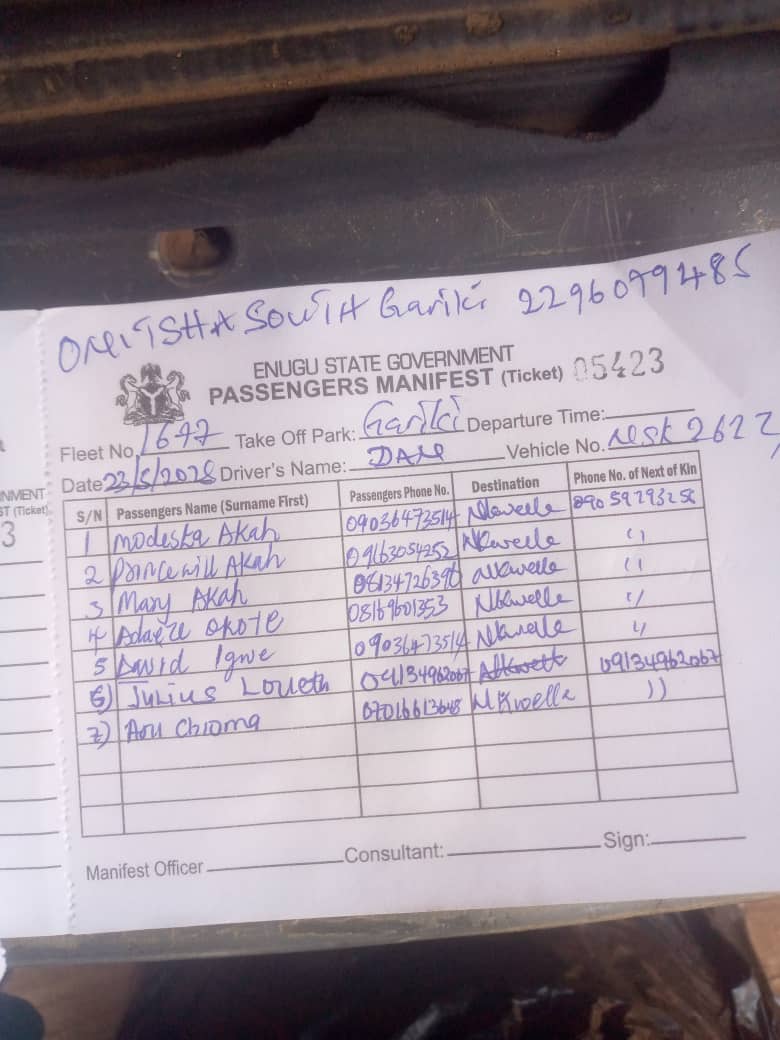 ONITSHA SOUTH Gariki 2296099485
ENUGU STATE GOVERNMENT
PASSENGERS MANIFEST (Ticket) 05423
Fleet No. 1647 Take Off Park: Gariki Departure Time:
Date 23/5/2028 Driver's Name: DAN Vehicle No. 2622
S/N Passengers Name (Surname First) Passengers Phone No. Destination Phone No. of Next of Kin
1 Modesta Akah 09036473514 Nkwelle 09059293256
2 Princewill Akah 09163054252 Nkwelle "
3 Mary Akah 08134726396 Nkwelle "
4 Adaeze Okoye 08169601353 Nkwelle "
5 David Igwe 09036473514 Nkwelle "
6) Julius Loueth 09134962067 Nkwelle 09134962067
7) Anu Chioma 07016613648 Nkwelle "
Manifest Officer Consultant: Sign:
NMENT
ST (Ticket)
3